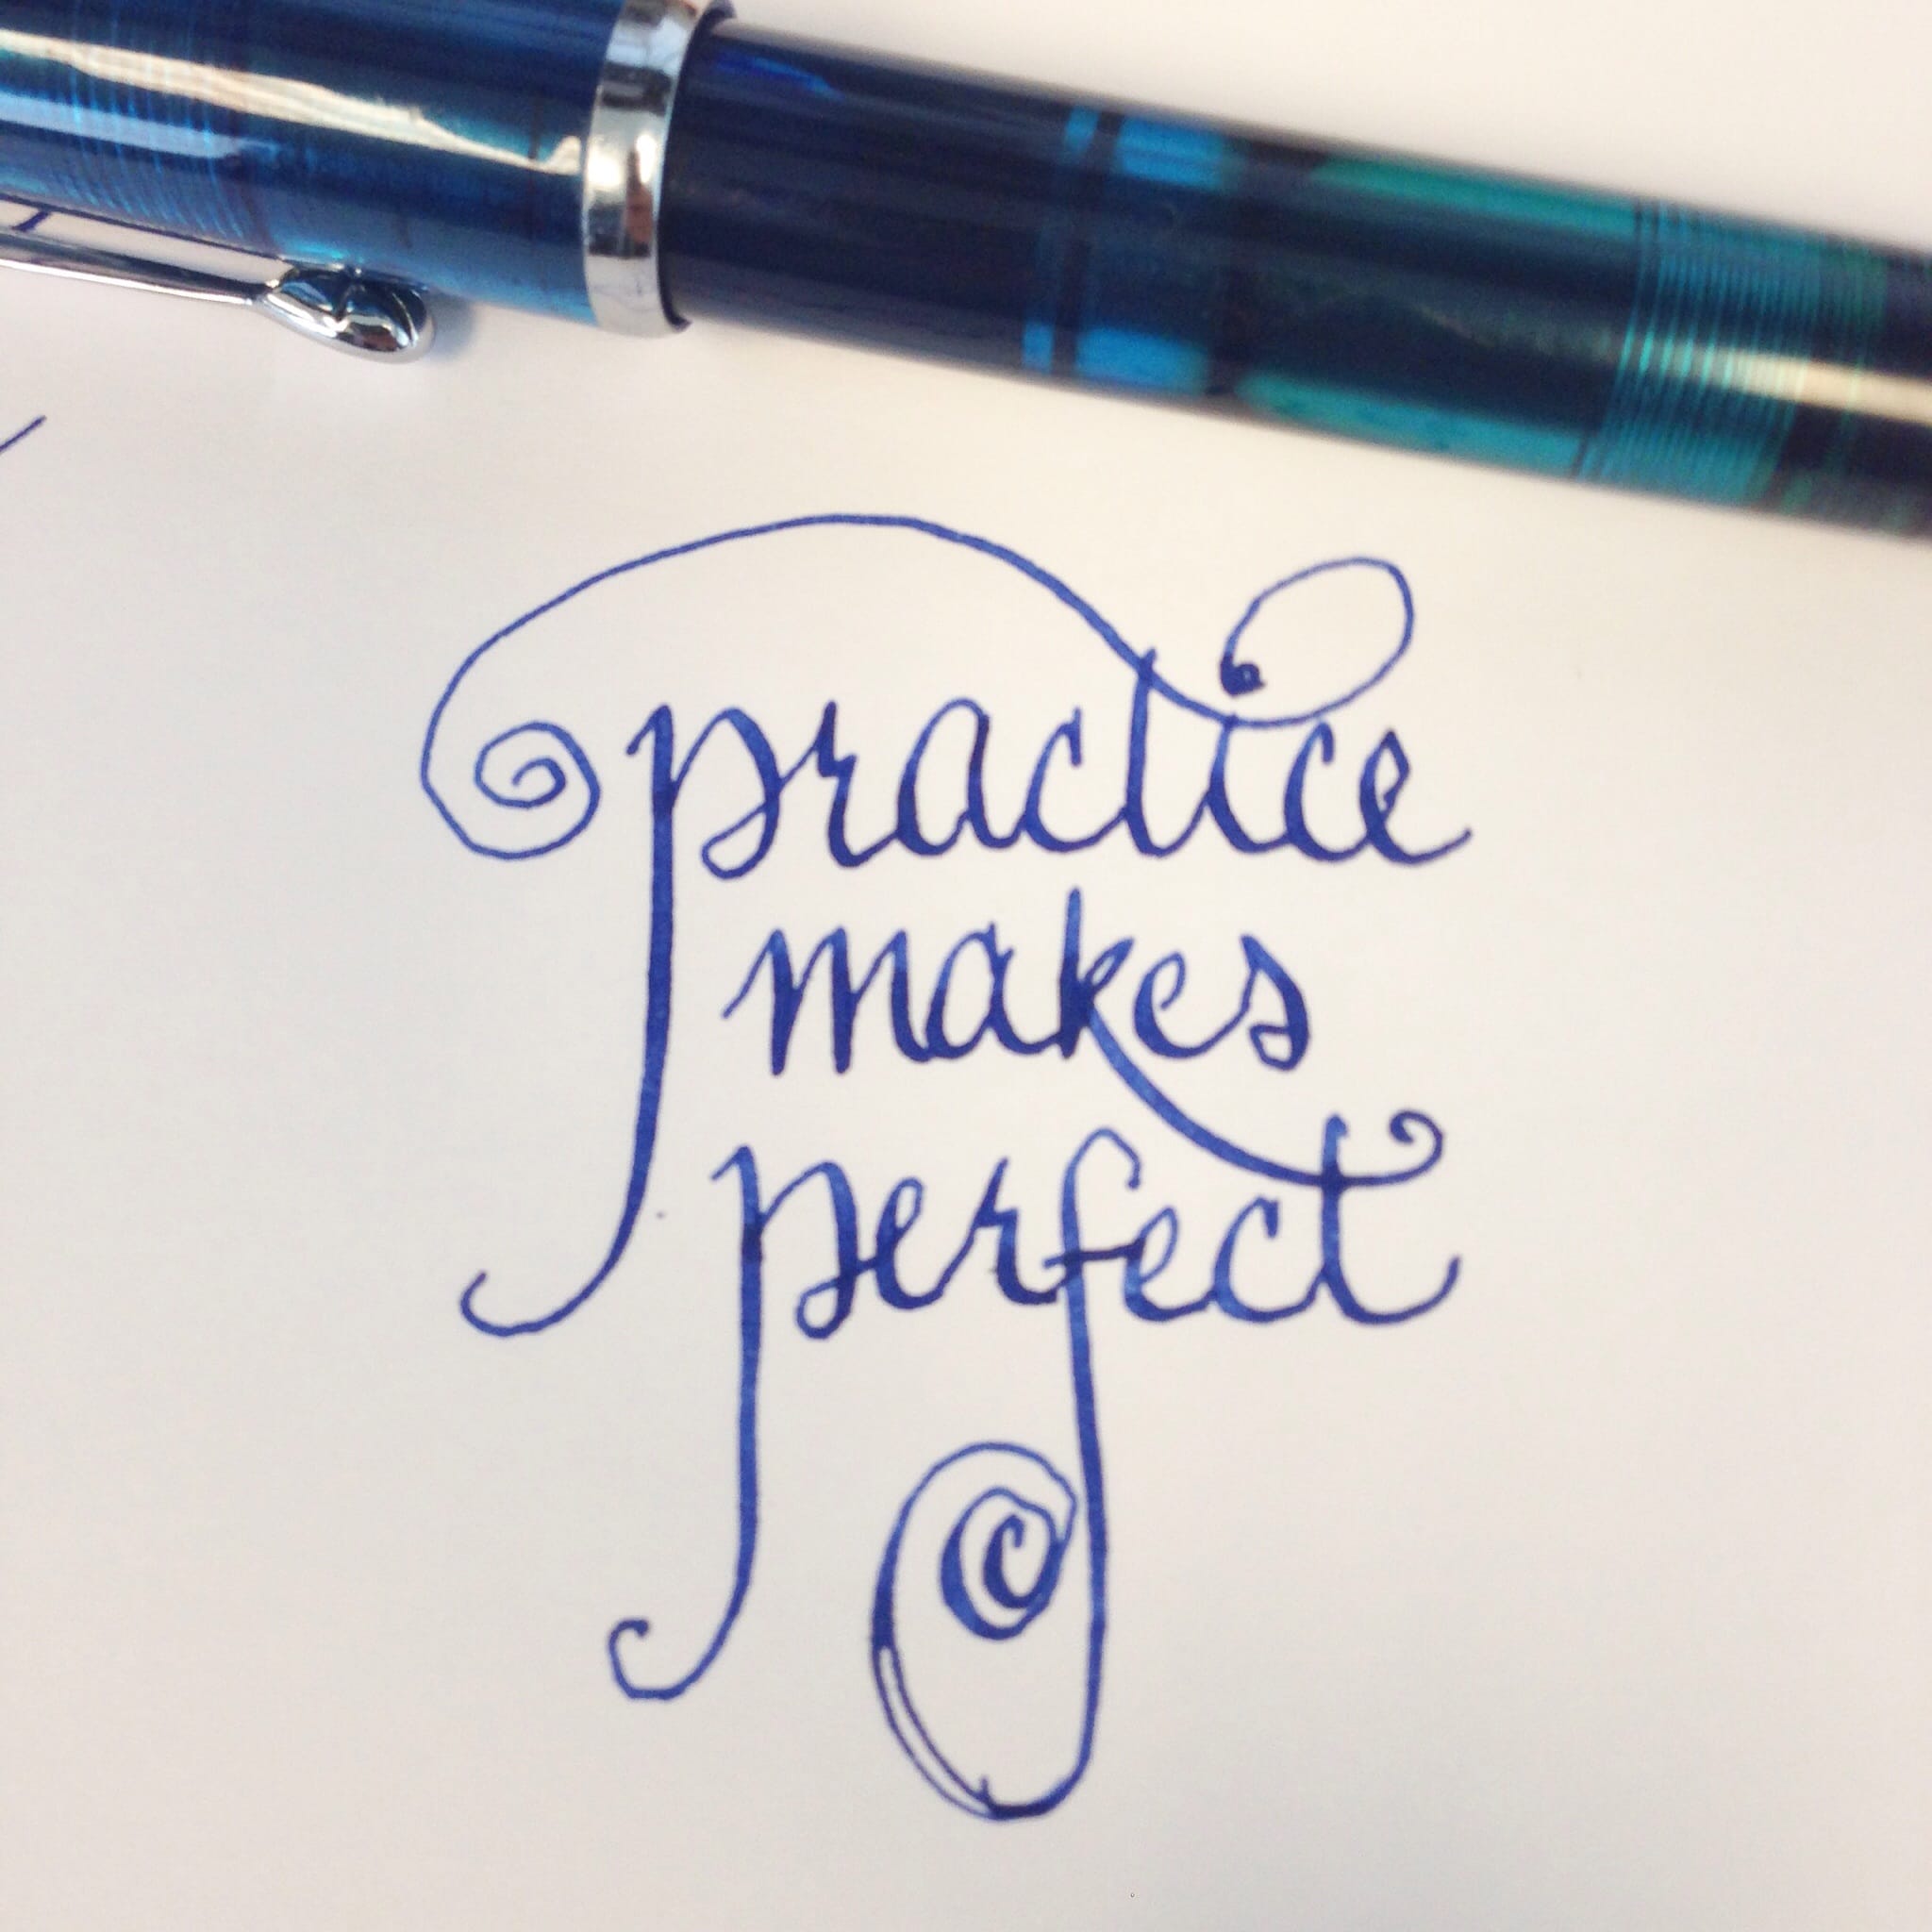 practice
makes
perfect